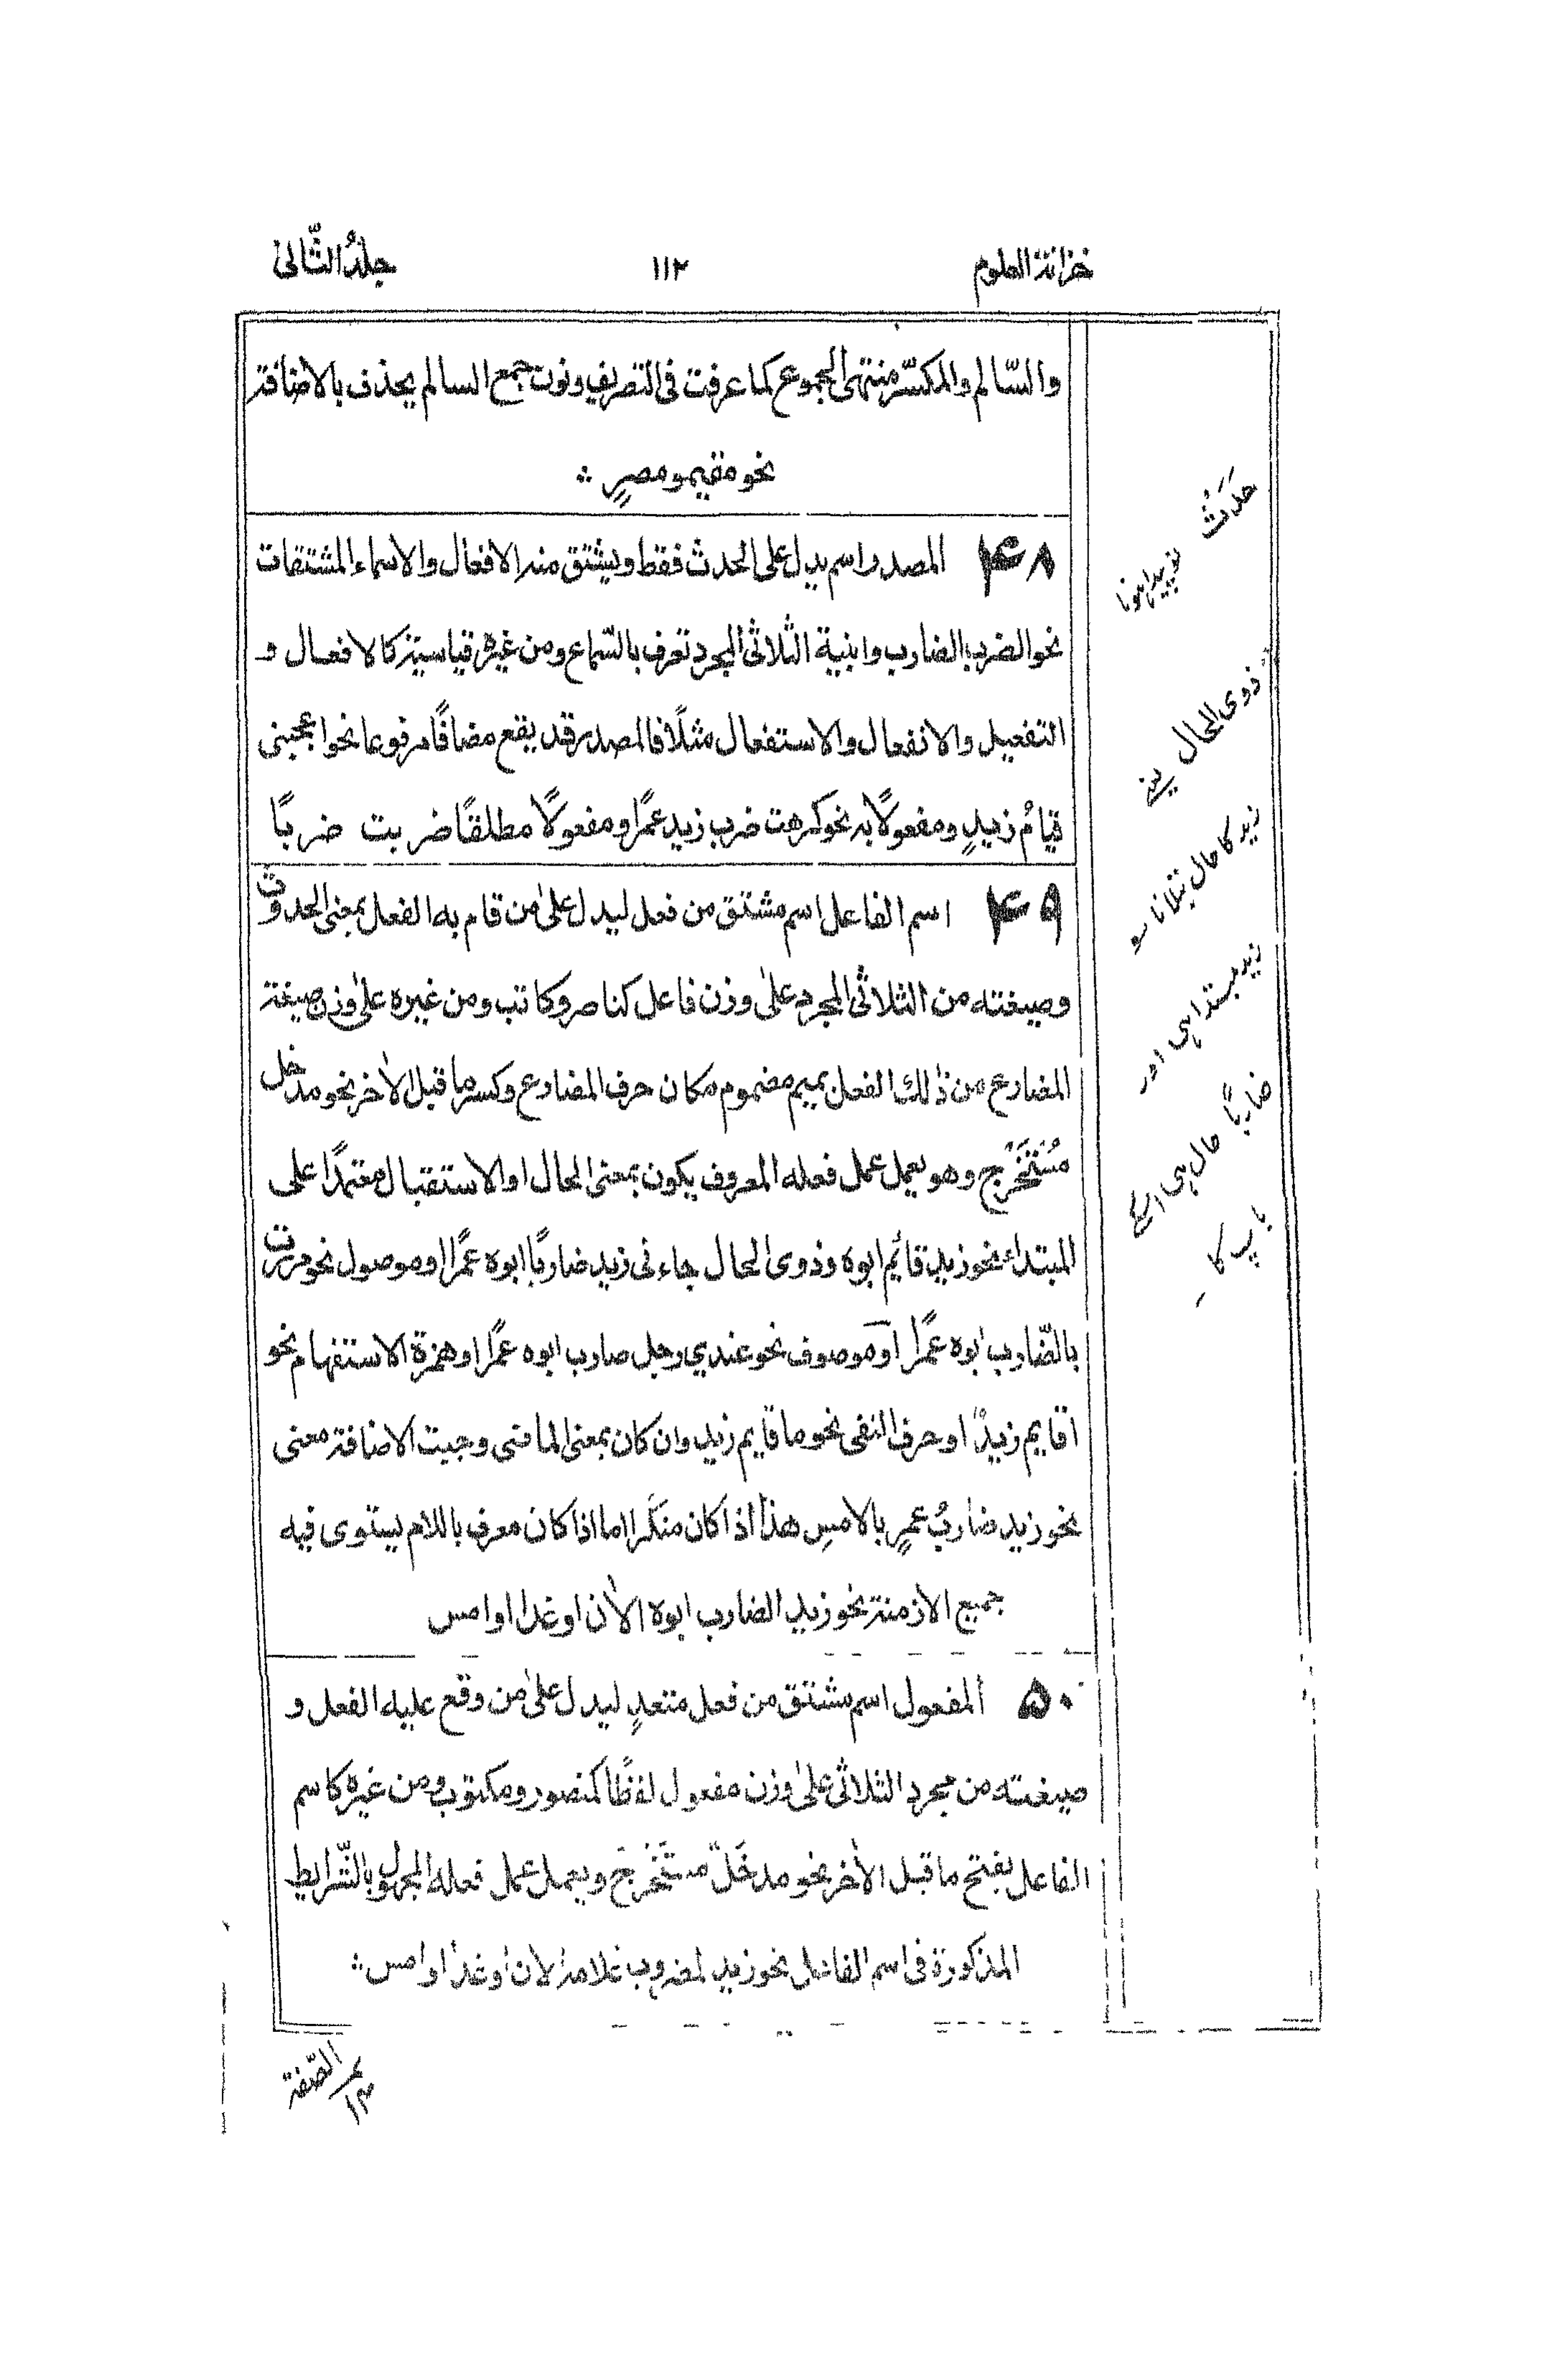 خزانة العلوم ١١٢ جلدُ الثّانی
والسّالم والمکسّر منتهی الجموع کما عرفت فی التصریف ونون جمع السالم یحذف بالاضافة
نحو مقیمو مصرٍ
۴۸ المصدر اسم یدل علی الحدث فقط ویشتق منه الافعال والاسماء المشتقات
نحو الضرب الضارب وابنیة الثلاثی المجرد تعرف بالسّماع ومن غیره قیاسیة کالافعال و
التفعیل والانفعال والاستفعال مثلًا فالمصدر قد یقع مضافًا مرفوعا نحو اعجبنی
قیامُ زیدٍ ومفعولًا به نحو کرهت ضرب زید عمرًا ومفعولًا مطلقًا ضربت ضربًا
۴۹ اسم الفاعل اسم مشتق من فعل لیدل علیٰ من قام به الفعل بمعنی الحدوث
وصیغته من الثلاثی المجرد علیٰ وزن فاعل کناصر وکاتب ومن غیره علیٰ وزن صیغة
المضارع من ذٰلك الفعل بمیم مضموم مکان حرف المضارع وکسر ما قبل الاٰخر نحو مدخل
مُسْتَخْرِج وهو یعمل عمل فعله المعروف یکون بمعنی الحال او الاستقبال معتمدًا علی
المبتداء نحو زید قائم ابوه وذوی الحال جاءنی زید ضاربًا ابوه عمرًا او موصول نحو مررت
بالضّارب ابوه عمرًا او موصوف نحو عندی رجل ضارب ابوه عمرًا او همزة الاستفهام نحو
اقایم زیدٌ او حرف النفی نحو ما قایم زید وان کان بمعنی الماضی وجبت الاضافة معنی
نحو زید ضاربُ عمرٍ بالامسِ هذا اذا کان منکّرا اما اذا کان معرف باللام یستوی فیه
جمیع الازمنة نحو زید الضارب ابوه الاٰن او غدا او امس
۵۰ المفعول اسم مشتق من فعل متعدٍ لیدل علیٰ من وقع علیه الفعل و
صیغته من مجرد الثلاثی علیٰ وزن مفعول لفظًا کمنصور ومکتوب ومن غیره کاسم
الفاعل بفتح ما قبل الاٰخر نحو مدخَل مستخرَج ویعمل عمل فعله المجهول بالشّرایط
المذکورة فی اسم الفاعل نحو زید مضروب غلامه الاٰن او غدا او امس
حَدَثْ
نوپیدا ہونا
ذوی الحال یعنے
زید کا حال بتلانا سو
زید مبتدا ہی اور
ضاربًا حال ہی اسکے
باپ کا
الصّفة